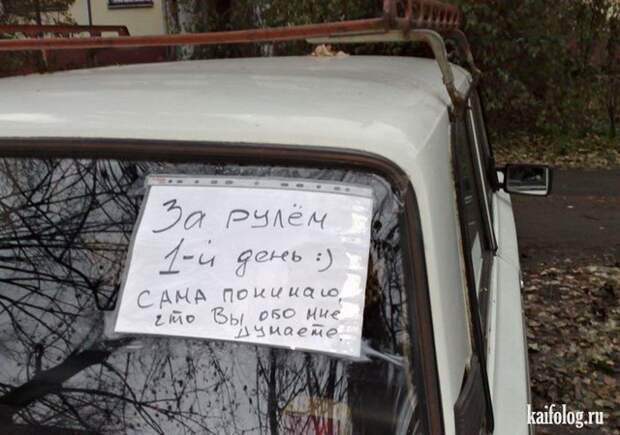 За рулём
1-й день :)
САМА понимаю,
что Вы обо мне
думаете
kaifolog.ru